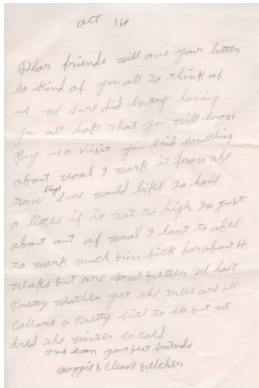 oct 14
Dear friends will ans your letter
so kind of you all to think of
us we sure did enjoy having
you all hope that you will soon
Pay us a visit you said something
about wool I work it from the
raw stage I sure would like to have
a little if it is not to high I'm Just
about out of wool I hant to able
to work much bin sick for about 4
weaks but are some better we have
Pretty weather yet the trees are all
Collars a Pretty sight to see but we
dred the winter so cold
ans soon your best friends
Maggie & Cleave Belcher